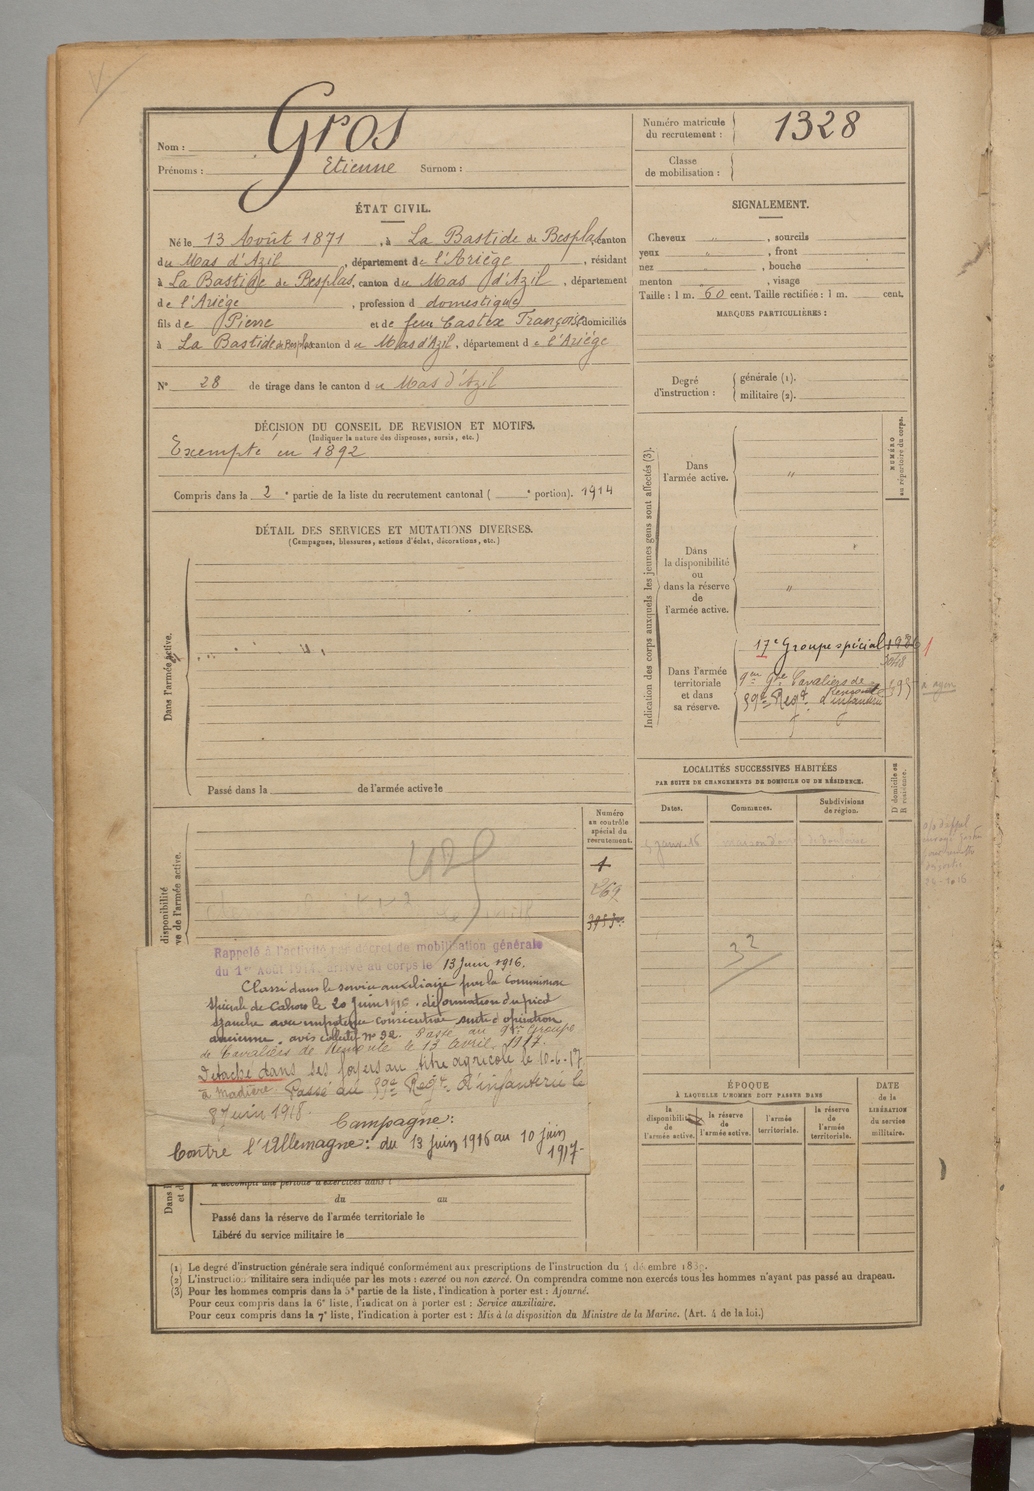 Nom : Gros
Prénoms : Etienne Surnom :
Numéro matricule du recrutement : 1328
Classe de mobilisation :
ÉTAT CIVIL.
Né le 13 Août 1871, à La Bastide de Besplas, canton
du Mas d'Azil, département de l'Ariège, résidant
à La Bastide de Besplas, canton du Mas d'Azil, département
de l'Ariège, profession d domestique
fils de Pierre et de feue Castex Françoise domiciliés
à La Bastide de Besplas canton du Mas d'Azil, département de l'Ariége
N° 28 de tirage dans le canton du Mas d'Azil
DÉCISION DU CONSEIL DE REVISION ET MOTIFS.
(Indiquer la nature des dispenses, sursis, etc.)
Exempté en 1892
Compris dans la 2e partie de la liste du recrutement cantonal ( e portion). 1914
DÉTAIL DES SERVICES ET MUTATIONS DIVERSES.
(Campagnes, blessures, actions d'éclat, décorations, etc.)
Dans l'armée active.
Passé dans la de l'armée active le
SIGNALEMENT.
Cheveux " , sourcils
yeux " , front
nez , bouche
menton , visage
Taille : 1 m. 60 cent. Taille rectifiée : 1 m. cent.
MARQUES PARTICULIÈRES :
Degré d'instruction : générale (1).
militaire (2).
Indication des corps auxquels les jeunes gens sont affectés (3).
NUMÉRO au répertoire du corps.
Dans l'armée active. "
Dans la disponibilité ou dans la réserve de l'armée active. "
Dans l'armée territoriale et dans sa réserve.
17e Groupe spécial
9me Gpe Cavaliers de Remonte
59e Regt d'infanterie
LOCALITÉS SUCCESSIVES HABITÉES
PAR SUITE DE CHANGEMENTS DE DOMICILE OU DE RÉSIDENCE.
Dates. Communes. Subdivisions de région.
D domicile ou R résidence.
32
Numéro au contrôle spécial du recrutement.
1
269
disponibilité
ve de l'armée active.
Rappelé à l'activité par décret de mobilisation générale
du 1er Août 1914, arrivé au corps le 13 Juin 1916.
Classé dans le service auxiliaire par la Commission
spéciale de Cahors le 20 Juin 1916. déformation du pied
gauche avec impotence consécutive suite d'opération
ancienne. avis collectif n° 32. Passé au 9me Groupe
de Cavaliers de Remonte le 13 Avril 1917.
Détaché dans ses foyers au titre agricole le 10-6-17
à Madière. Passé au 59e Regt d'infanterie le
8 Juin 1918.
Campagne :
Contre l'Allemagne : du 13 Juin 1916 au 10 juin
1917-
A accompli une période d'exercices dans l
du au
Passé dans la réserve de l'armée territoriale le
Libéré du service militaire le
ÉPOQUE
À LAQUELLE L'HOMME DOIT PASSER DANS
la disponibilité de l'armée active.
la réserve de l'armée active.
l'armée territoriale.
la réserve de l'armée territoriale.
DATE de la LIBÉRATION du service militaire.
(1) Le degré d'instruction générale sera indiqué conformément aux prescriptions de l'instruction du
(2) L'instruction militaire sera indiquée par les mots : exercé ou non exercé. On comprendra comme non exercés tous les hommes n'ayant pas passé au drapeau.
(3) Pour les hommes compris dans la 5e partie de la liste, l'indication à porter est : Ajourné.
Pour ceux compris dans la 6e liste, l'indication à porter est : Service auxiliaire.
Pour ceux compris dans la 7e liste, l'indication à porter est : Mis à la disposition du Ministre de la Marine. (Art. 4 de la loi.)